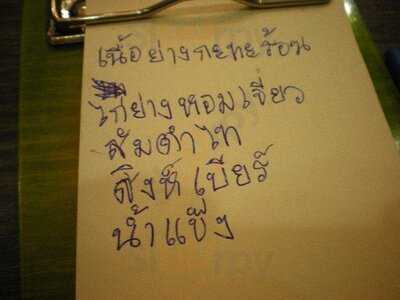 เนื้อย่างกะทะร้อน
ไก่ย่างหอมเจี่ยว
ส้มตำไท
สิงห์เบียร์
น้ำแข็ง